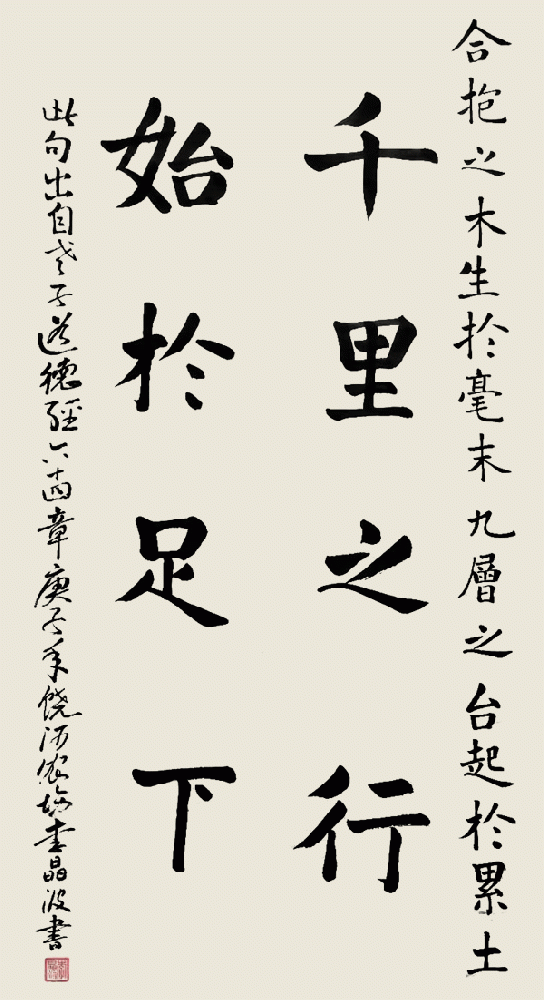 合抱之木生於毫末九層之台起於累土
千里之行
始於足下
此句出自老子道德經六十四章庚子年饶河农场李晶波書